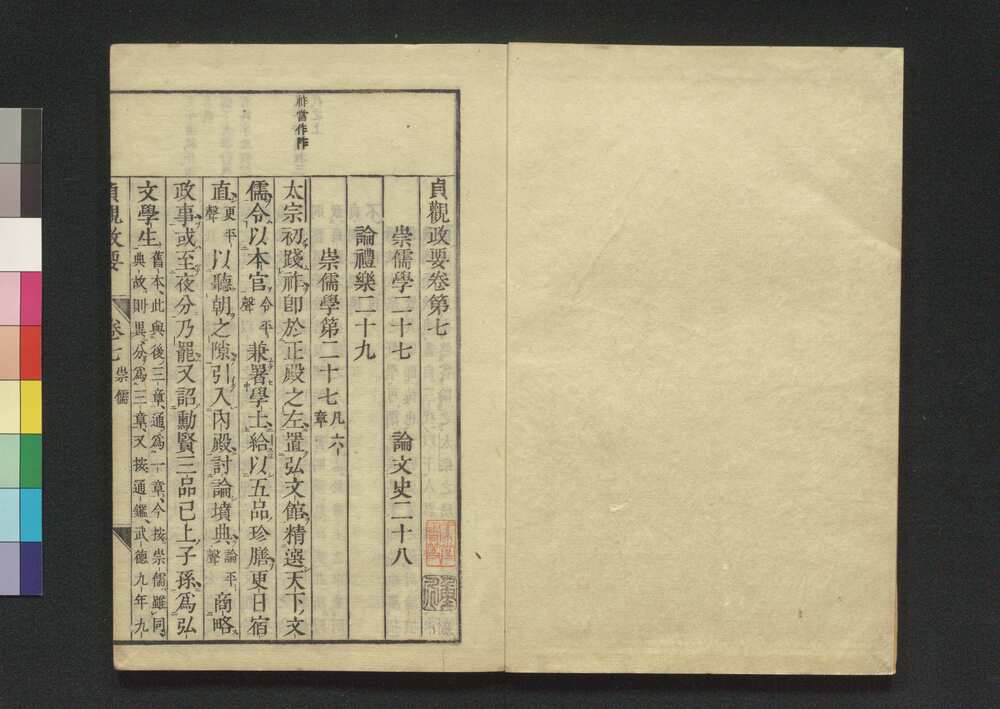 祚當作阼
貞觀政要卷第七
崇儒學二十七 論文史二十八
論禮樂二十九
崇儒學第二十七 凡六章
太宗初踐祚即於正殿之左置弘文館精選天下文
儒令以本官 令平聲 兼署學士給以五品珍膳更日宿
直 更平聲 以聽朝之隙引入內殿討論墳典 論平聲 商略
政事或至夜分乃罷又詔勳賢三品已上子孫爲弘
文學生 舊本、此與後三章、通爲一章、今按崇儒雖同、典故則異、分爲三章、又按通鑑、武德九年九
貞觀政要 卷七 崇儒